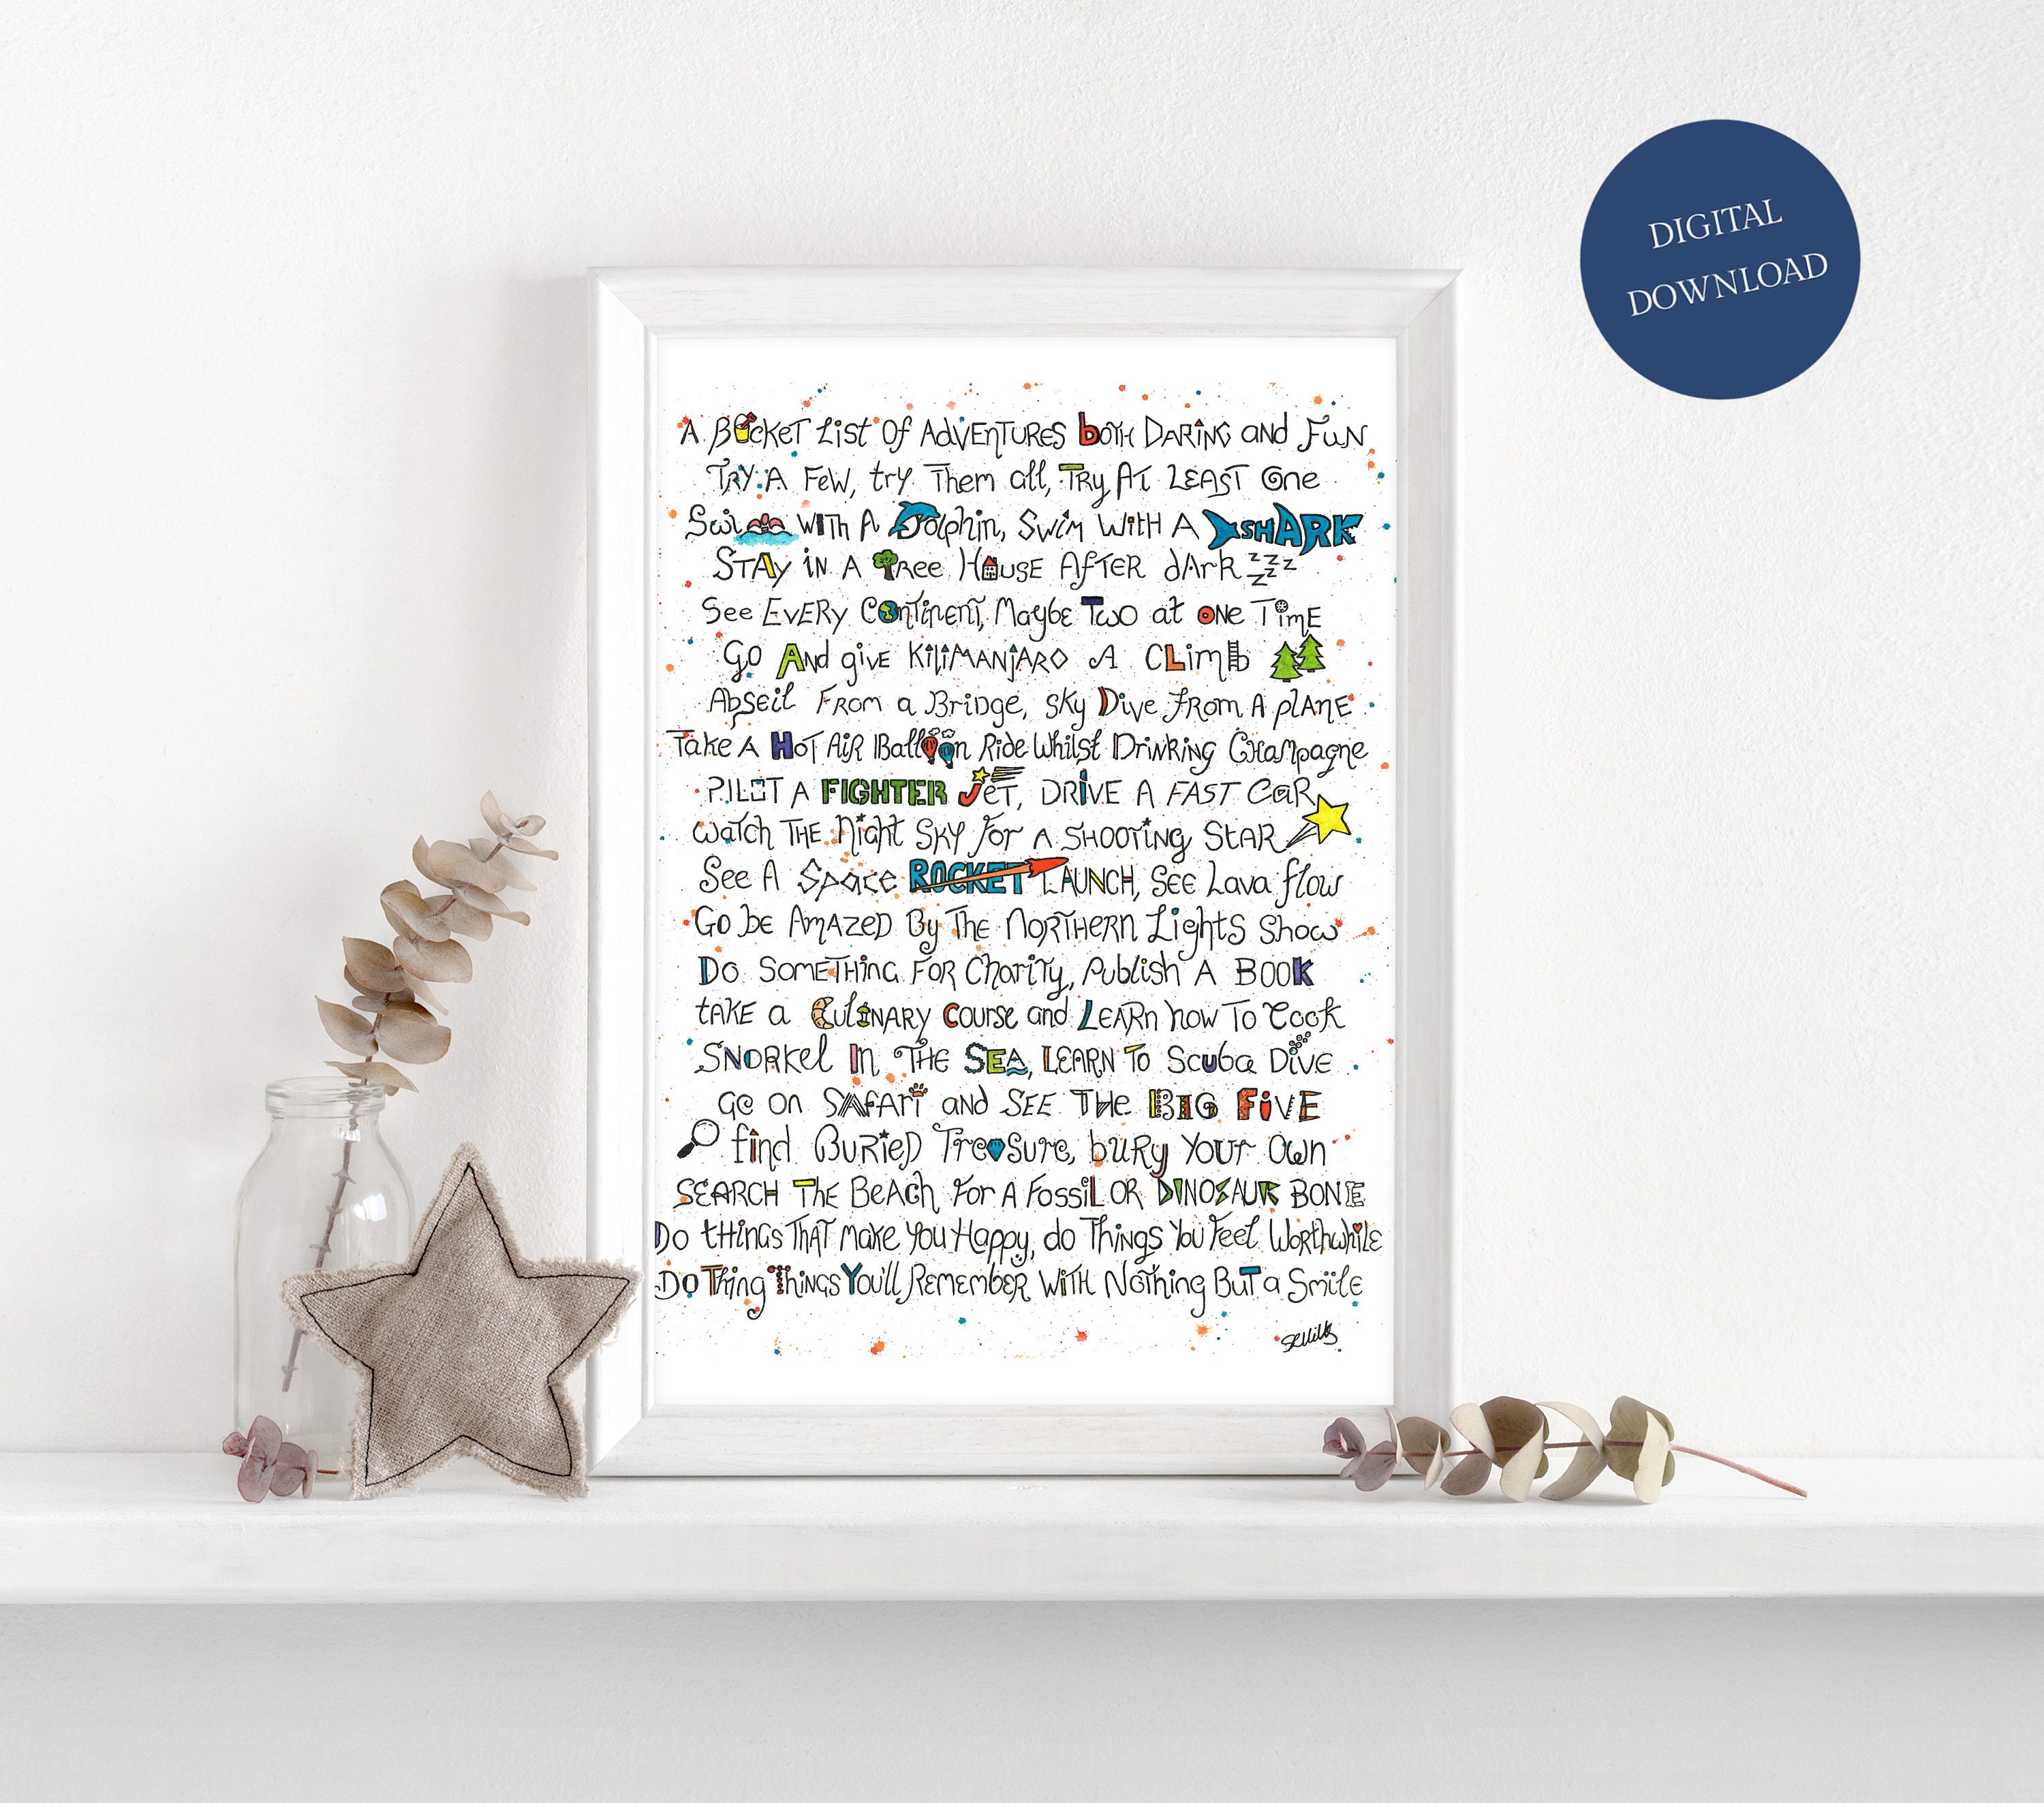 DIGITAL
DOWNLOAD
A BUCKET List Of AdVEnTUREs bOTH DARiNG and FuN
TRY A FeW, try Them all, TRy AT LEAST One
Swim WiTh A Dolphin, SWiM WitH A SHARK
STAy iN A TRee HOUSE AfTER dArk zzzzzz
See EVERy COnTinenT, Maybe Two at ONe TimE
GO And givE KiLiMANjARO A CLimb
Abseil FRom a BriDge, sKy Dive fRom A plANE
Take A HoT AiR Balloon Ride Whilst DRiNKiNg CHaMpagne
PILOT A FIGHTER JeT, DRIVE A FAST CaR
WaTch THE Night SKY for A SHOOTiNg STAR
See A Space ROCKET LAUNCH, SEE Lava flow
GO be AmAZED By The NORTHERN Lights Show
Do SOMETHing FOR Charity, Publish A BOOK
tAKE a CuliNARY Course and LEARn how To Cook
SNORKel In THE SEA, LEARN To Scuba DiVE
go on SAfARi and SEE THe BIG FiVE
find BuRiED Treasure, bURy YOUr Own
SEARCH The BeAch for A FossiL OR DINOSAUR BONE
Do tHings THAT make You Happy, do Things You Feel WorthwhiLE
DO Thing Things You'll REMEMbeR WiTH NOThing BuT a Smile